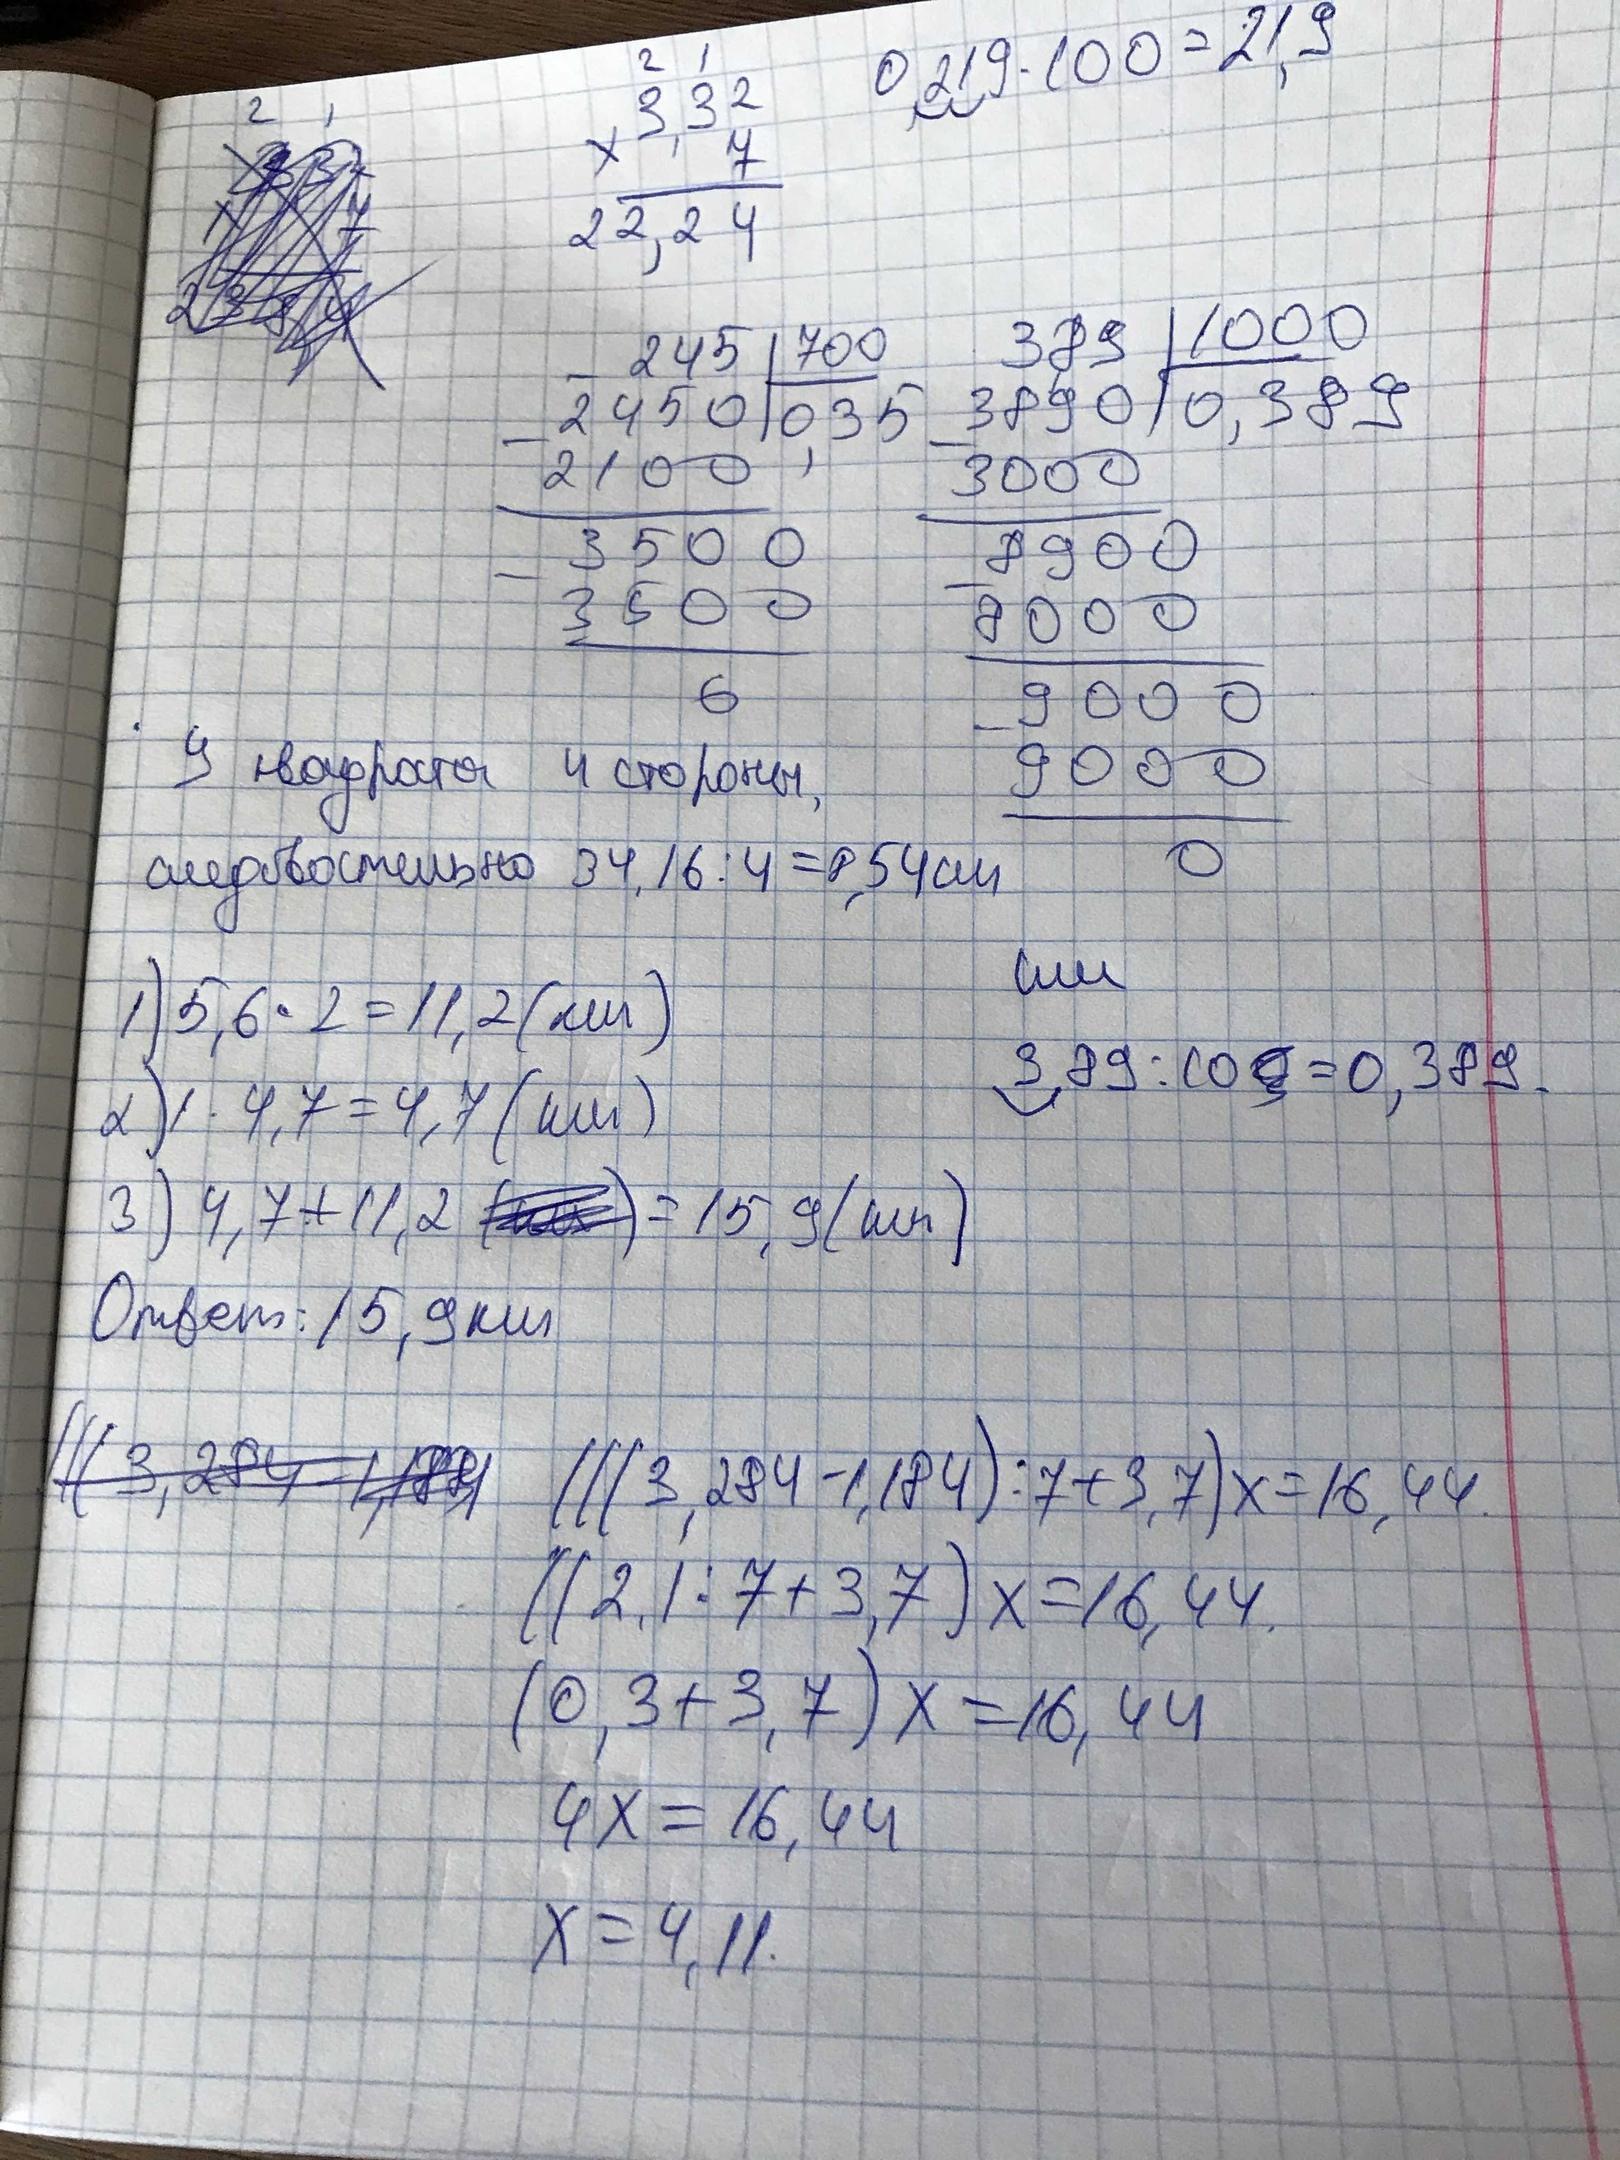 2 1
3,32
× 7
22,24
0,219·100=21,9
2 1
332
× 7
2324
245 | 700
2450 | 0,35
2100
3500
3500
0
389 | 1000
3890 | 0,389
3000
8900
8000
9000
9000
0
У квадрата 4 стороны,
следовательно 34,16:4=8,54см
1) 5,6·2=11,2(км)
2) 1·4,7=4,7(км)
3) 4,7+11,2 =15,9(км)
Ответ: 15,9км
или
3,89:10=0,389.
(((3,284-1,184
(((3,284-1,184):7+3,7)x=16,44.
((2,1:7+3,7)x=16,44.
(0,3+3,7)x=16,44
4x=16,44
x=4,11.